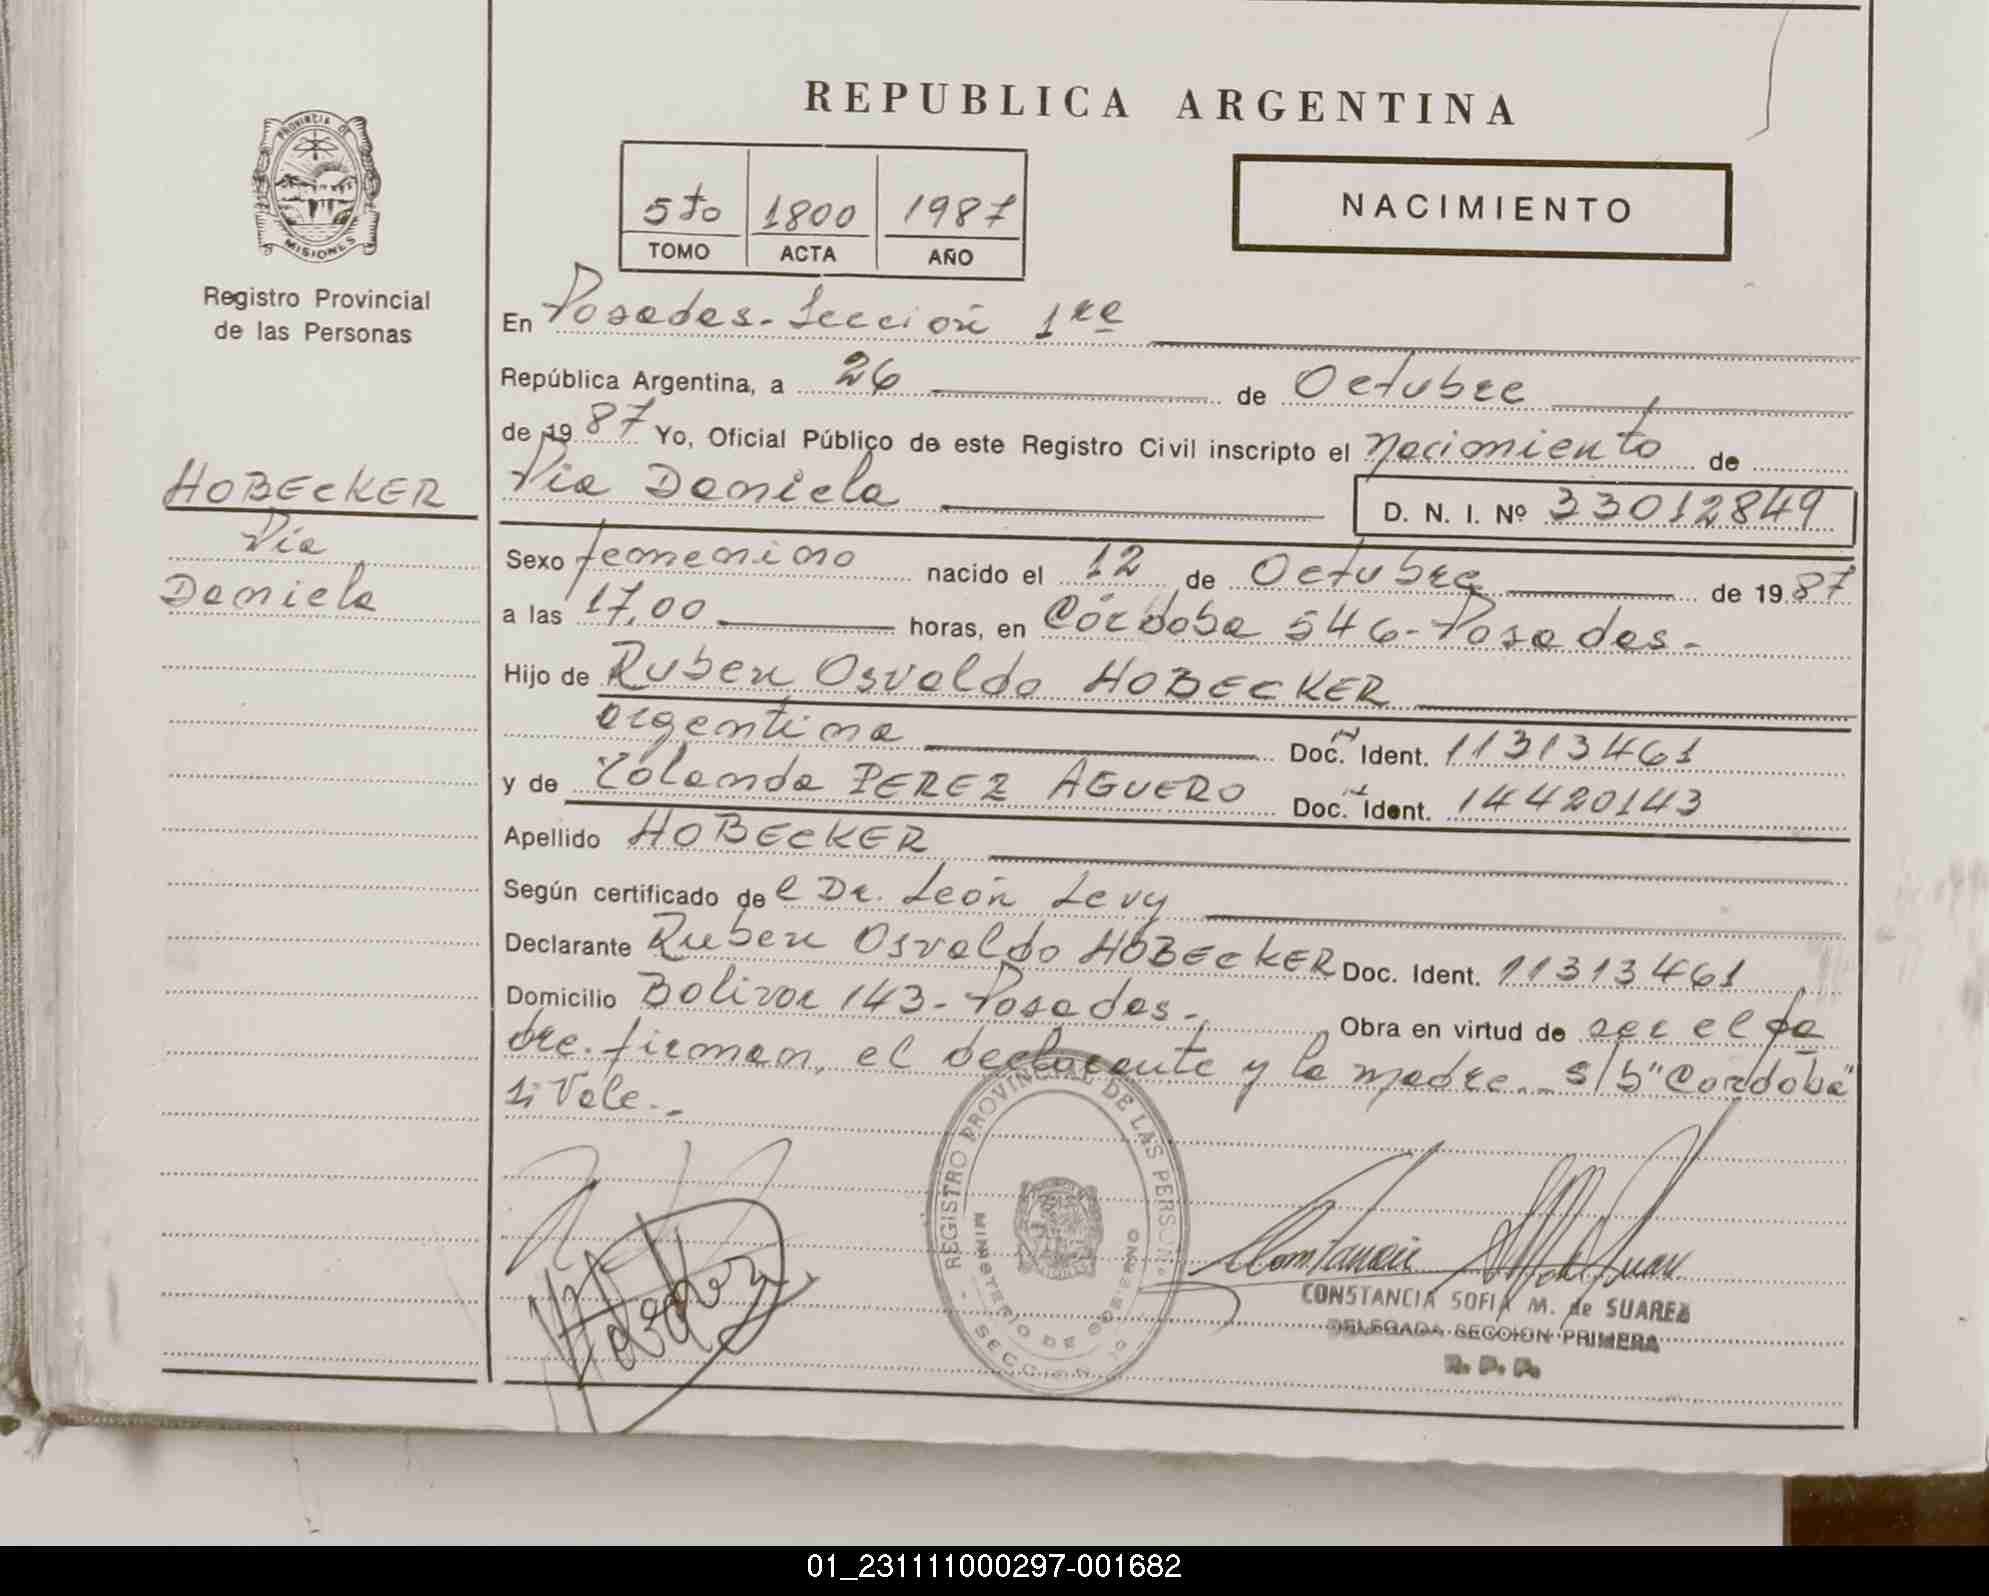 REPUBLICA ARGENTINA
PROVINCIA DE
MISIONES
Registro Provincial
de las Personas
5to 1800 1987
TOMO ACTA AÑO
NACIMIENTO
En Posadas - Sección 1ra
República Argentina, a 26 de Octubre
de 1987 Yo, Oficial Público de este Registro Civil inscripto el Nacimiento de
Pia Daniela D. N. I. Nº 33012849
HOBECKER
Pia
Daniela
Sexo femenino nacido el 12 de Octubre de 1987
a las 17,00 horas, en Córdoba 546 - Posadas -
Hijo de Ruben Osvaldo HOBECKER
argentina Doc. Ident. 11313461
y de Yolanda PEREZ AGUERO Doc. Ident. 14420143
Apellido HOBECKER
Según certificado del Dr. León Levy
Declarante Ruben Osvaldo HOBECKER Doc. Ident. 11313461
Domicilio Bolivar 143 - Posadas - Obra en virtud de ser el pa
dre. firman, el declarante y la madre. - s/b "Cordoba"
si Vale. -
REGISTRO PROVINCIAL DE LAS PERSON
MINISTERIO DE GOBIERNO
- SECCION 1º
CONSTANCIA SOFIA M. de SUAREZ
DELEGADA SECCION PRIMERA
R. P. P.
01_231111000297-001682